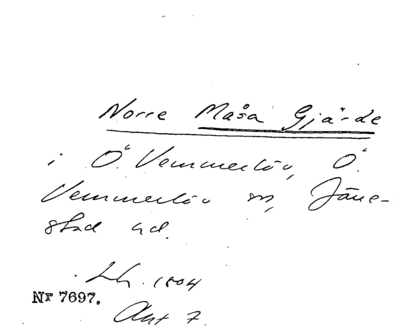 Norre Måsa Gjärde
i Ö. Vemmerlöv, Ö.
Vemmerlöv sn, Järre-
stad hd.
Lh. 1804
Nr 7697.
Akt 7.